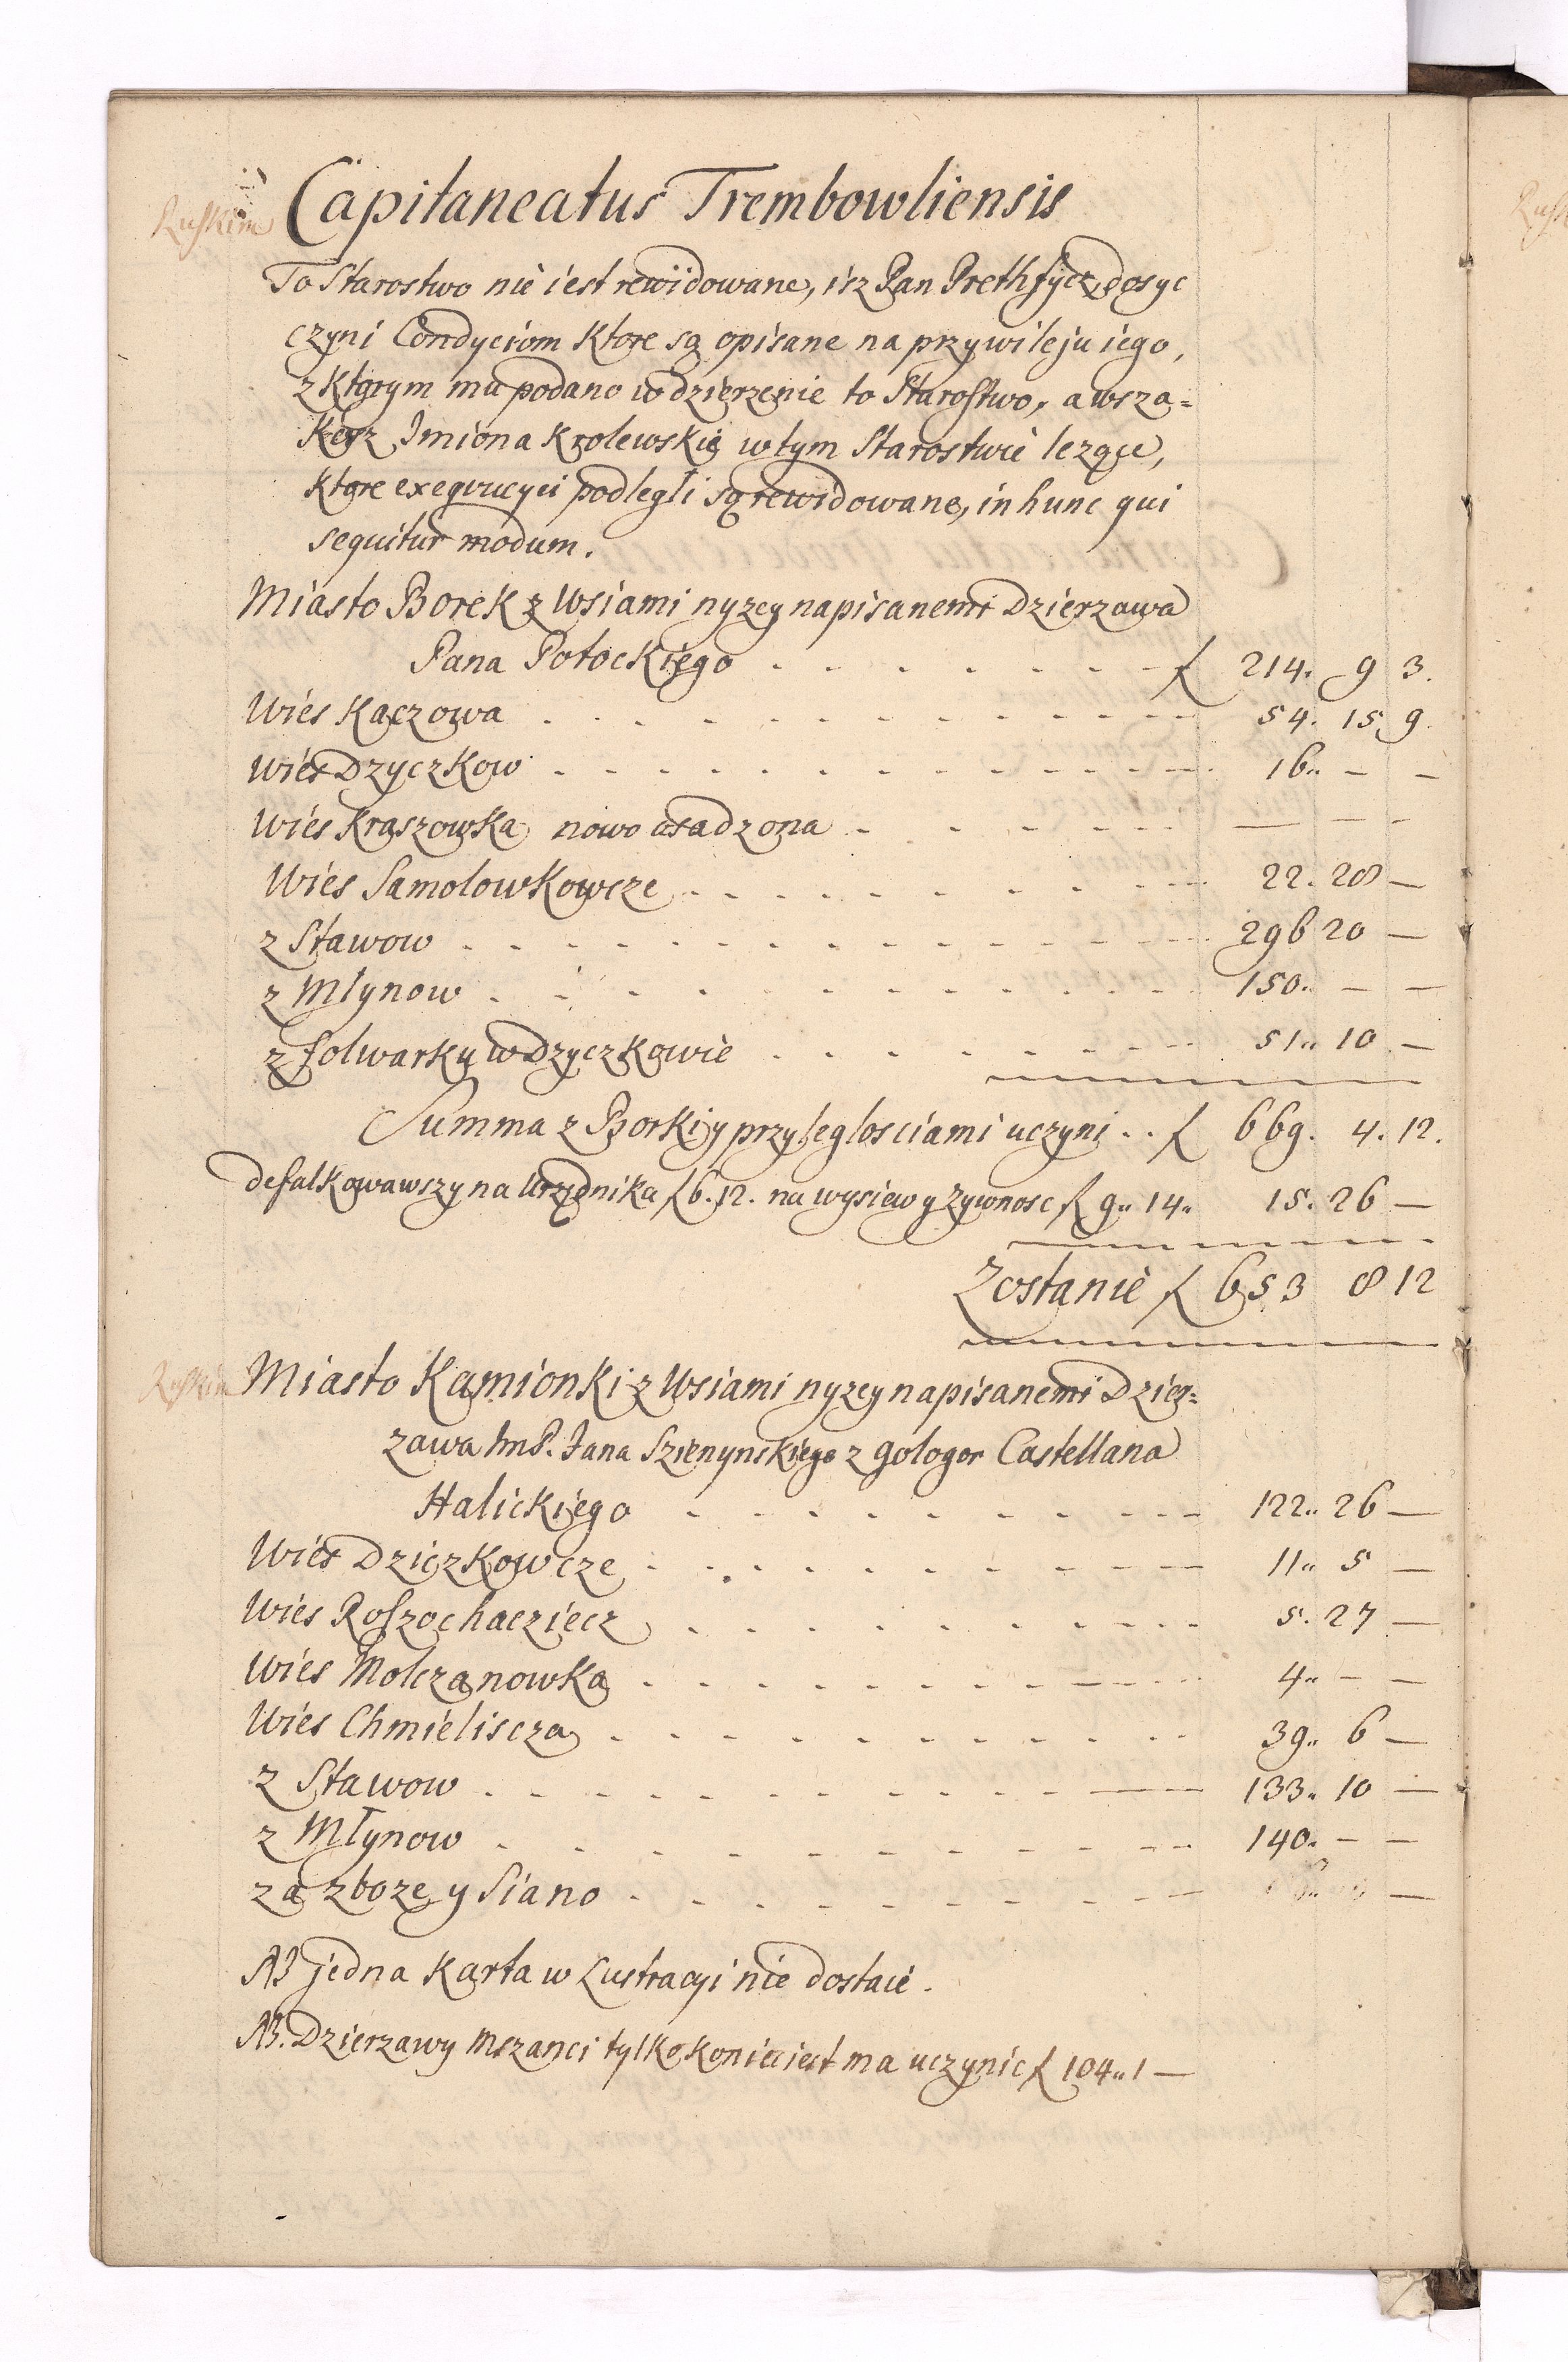 Capitaneatus Trembowliensis
Ruskim
To Starostwo nie iest rewidowane, isz Pan Prethfycz dosyc
czyni Condyciom ktore są opisane na przywileju iego,
z ktorym mu podano w dzierzenie to Starostwo, a wsza=
kesz Jmiona krolewskie w tym Starostwie lezące,
ktore exequucyei podlegli są rewidowane, in hunc qui
sequitur modum.
Miasto Borek z Wsiami nyzey napisanemi Dzierzawa
Pana Potockiego - - - - - - - - ƒ 214. 9 3.
Wies Kaczowa - - - - - - - - - - - - 54. 15. 9.
Wies Dzyczkow - - - - - - - - - - - - 16.. - -
Wies Kraszowka nowo osadzona - - - - - - — - -
Wies Samolowkowcze - - - - - - - - - - 22. 20 —
z Stawow - - - - - - - - - - - - - 296 20 —
z Młynow - - - - - - - - - - - - - 150.. — —
z folwarku w Dzyczkowie - - - - - - - - - 51.. 10 —
Summa z Borki y przyległosciami uczyni .. ƒ 669. 4. 12.
defalkowawszy na Urzędnika ƒ 6. 12. na wysiew y zywnosc ƒ 9.. 14.. 15. 26 —
Zostanie ƒ 653 8 12
Ruskim
Miasto Kamionki z Wsiami nyzey napisanemi Dzier=
zawa ImP. Jana Szienynskiego z Gologor Castellana
Halickiego - - - - - - - - - - 122.. 26 —
Wies Dziczkowcze - - - - - - - - - - 11.. 5 —
Wies Roszochacziecz - - - - - - - - - - 5. 27 —
Wies Molczanowka - - - - - - - - - - 4.. — —
Wies Chmieliscza - - - - - - - - - - 39.. 6 —
z Stawow - - - - - - - - - - - - 133.. 10 —
z Młynow - - - - - - - - - - - - 140.. — —
za zboze y Siano - - - - - - - - - - —
NB jedna karta w Lustracyi nie dostaie.
NB. Dzierzawy Mszanci tylko koniec iest ma uczynic ƒ 104.. 1 —